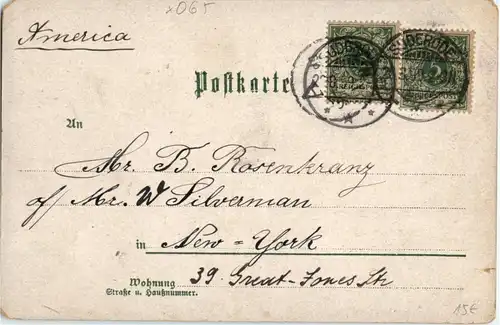 x065
America
Postkarte
SUDERODE
5
An
Mr. B. Rosenkranz
of Mr. W Silverman
in New-York
Wohnung 39. Great-Jones Str
Straße u. Hausnummer.
15€